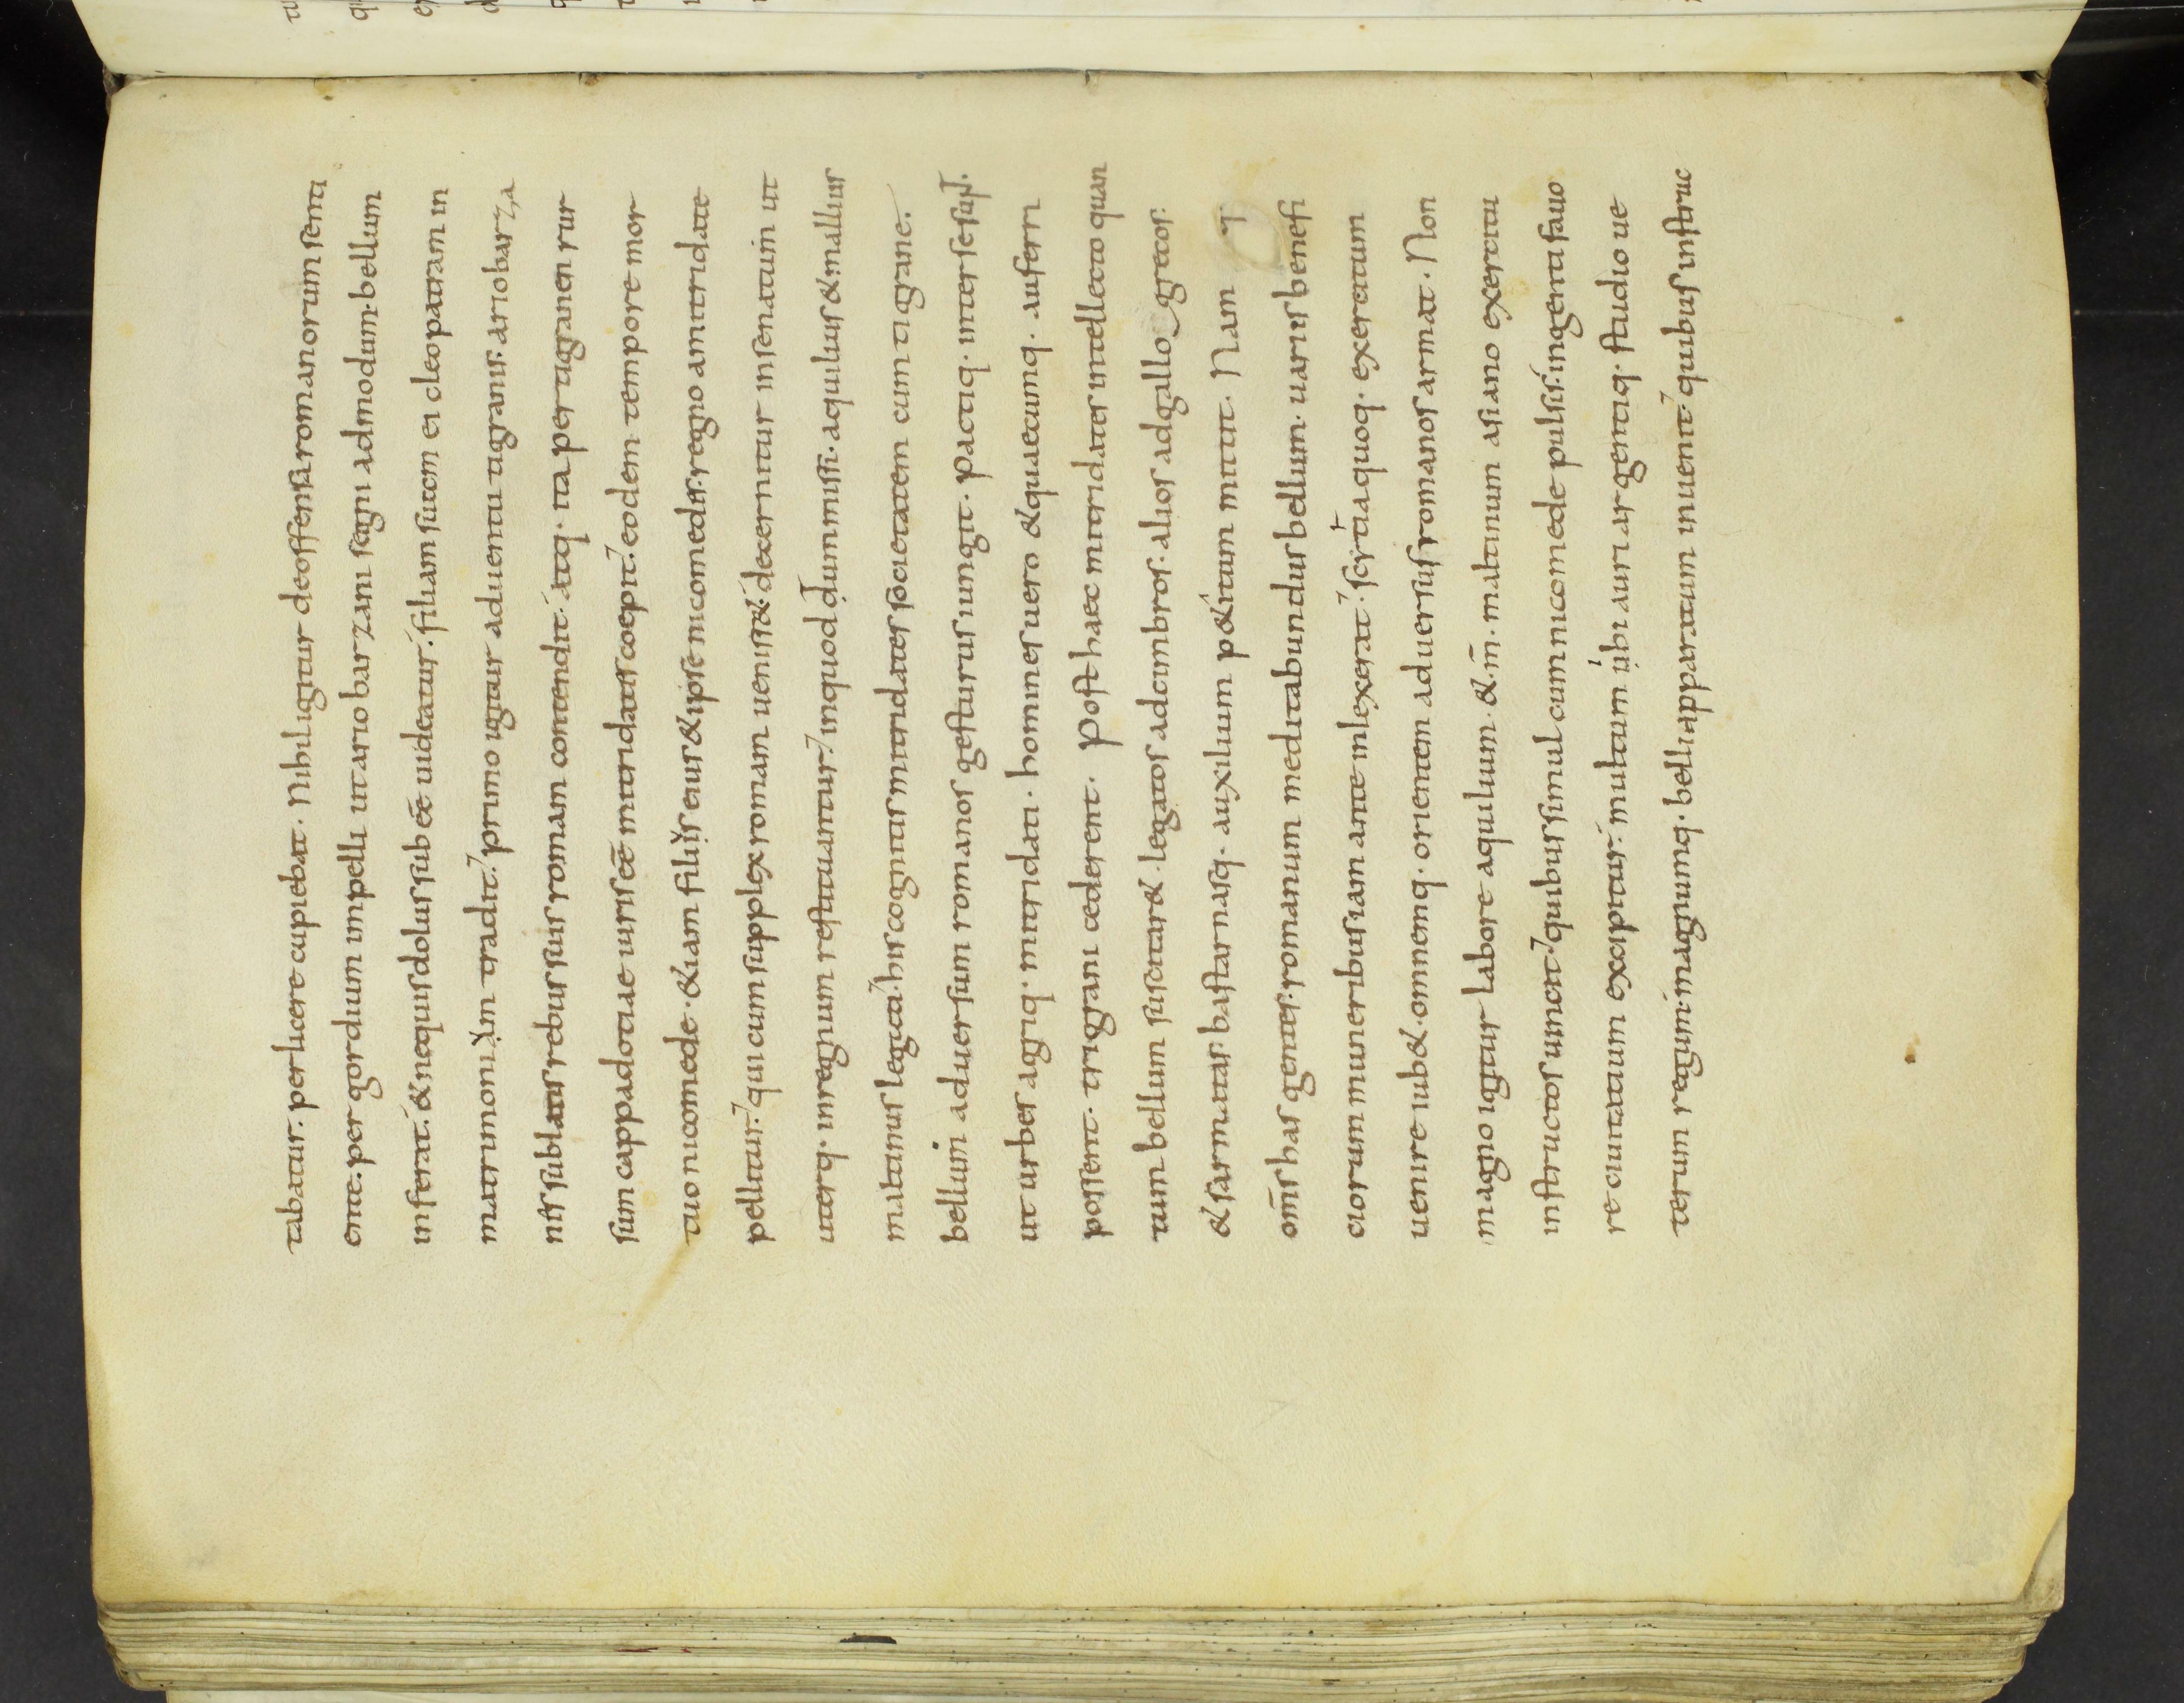 tabatur. per lucere cupiebat. Nihil igitur deoffensa romanorum senti
ente. per gordium impelli ut ariobarzani segni admodum. bellum
inferat. & nequis dolus sub eē uideatur. filiam suam ei cleopatram in
matrimoniūm tradit. primo igitur aduentu tigranis. ariobarza
nes sublatis rebus suis romam contendit. atq. ita per tigranen rur
sum cappadotiae iuris eē mitridatis coepit. eodem tempore mor
tuo nicomede. &iam filiis eius & ipse nicomedis. regno amitridate
pellitur. qui cum supplex romam uenisset. decernitur insenatum ut
uterq. inregnum restituantur. inquod dum missi. aquilius & mallius
maltinus legati. his cognitis mitridates societatem cum tigrane.
bellum aduersum romanos gesturus iungit. Pactiq. inter se sunt.
ut urbes agriq. mitridati. homines uero & quaecumq. auferri
possent. triograni cederent. Post haec mitridates intellecto quan
tum bellum suscitar&. legatos adcimbros. alios adgallo grecos.
& sarmatas. bastarnasq. auxilium p&itum mittit. Nam q
om̄s has gentes. romanum meditabundus bellum. uariis benefi
ciorum muneribus iam ante inlexerat. scytia quoq. exercitum
uenire iub&. omnemq. orientem aduersus romanos armat. Non
magno igitur labore aquilium &. m̄. maltinum asiano exercitu
instructos uincit. quibus simul cum nicomede pulsis. ingenti fauo
re ciuitatium excipitur. multum ibi auri argentiq. studio ue
terum regum. magnumq. belli apparatum inuenit. quibus instruc